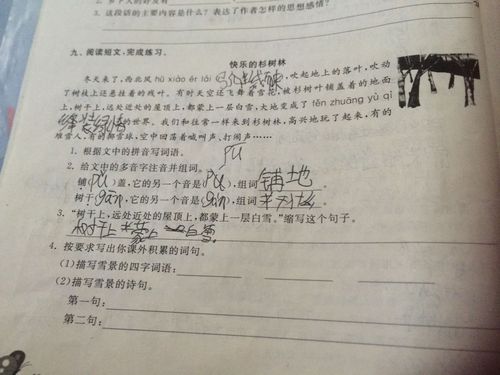 2. 乡下人的好友有
3. 这段话的主要内容是什么?表达了作者怎样的思想感情?
九、阅读短文,完成练习。
快乐的杉树林
冬天来了,西北风 hū xiào ér lái ,吹起地上的落叶,吹动
了树枝上还悬挂着的残叶。有时天空还飞舞着雪花,被杉树叶铺盖着的地面
上,树干上,远处近处的屋顶上,都蒙上一层白雪,大地变成了 fěn zhuāng yù qì
的世界。我们和往常一样来到杉树林,高兴地玩了起来,有的
堆雪人,有的掷雪球,空中回荡着喊叫声、打闹声……
1. 根据文中的拼音写词语。
pū
2. 给文中的多音字注音并组词。
铺(pū)盖,它的另一个音是(pù),组词 铺地
树干(gàn),它的另一个音是(gān),组词
3. “树干上,远处近处的屋顶上,都蒙上一层白雪。”缩写这个句子。
树干上 蒙上 白雪。
4. 按要求写出你课外积累的词句。
(1)描写雪景的四字词语:
(2)描写雪景的诗句。
第一句:
第二句: